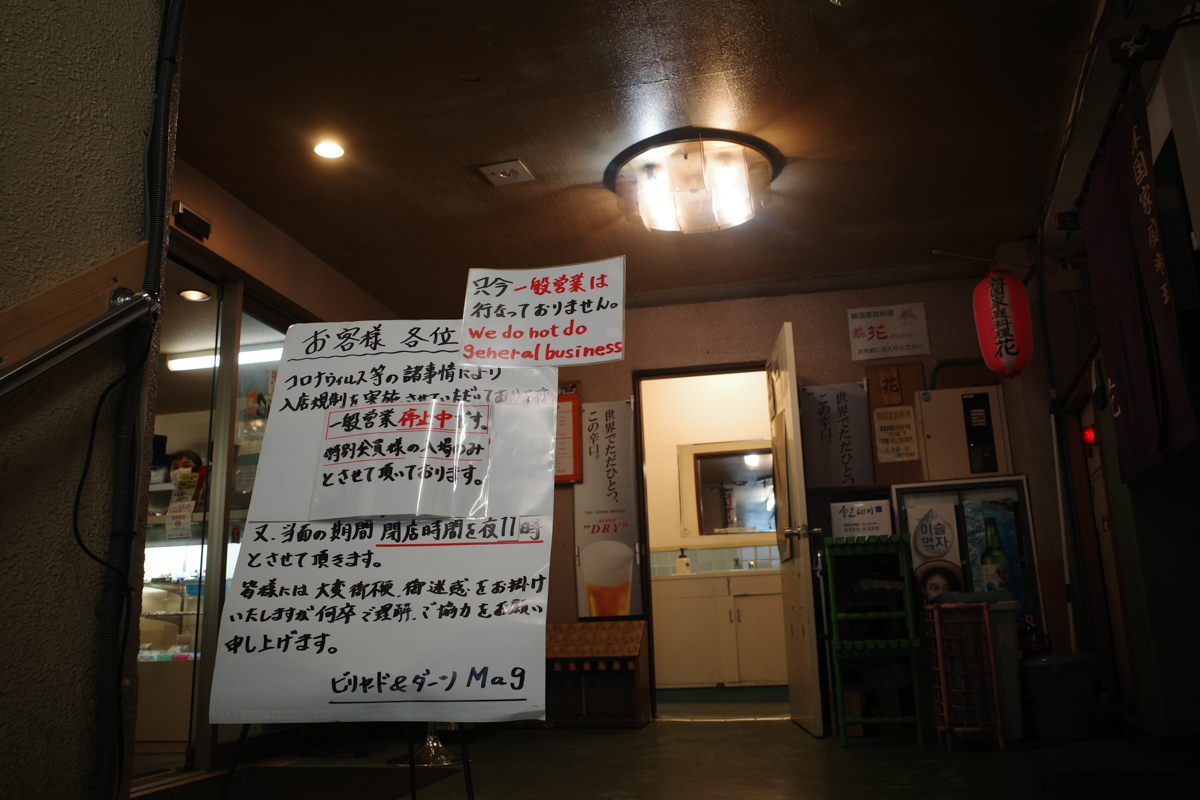 只今一般営業は
行なっておりません。
We do not do
general business
お客様 各位
コロナウィルス等の諸事情により
入店規制を実施させていただいております
一般営業停止中です。
特別会員様の入場のみ
とさせて頂いております。
又、当面の期間 閉店時間を夜11時
とさせて頂きます。
皆様には大変御不便、御迷惑をお掛け
いたしますが何卒ご理解、ご協力をお願い
申し上げます。
ビリヤード&ダーツ Mag
世界でただひとつ、
この辛口。
SUPER
"DRY"
世界でただひとつ、
この辛口。
韓国家庭料理
花
花
韓国家庭料理 花
이슬
먹자